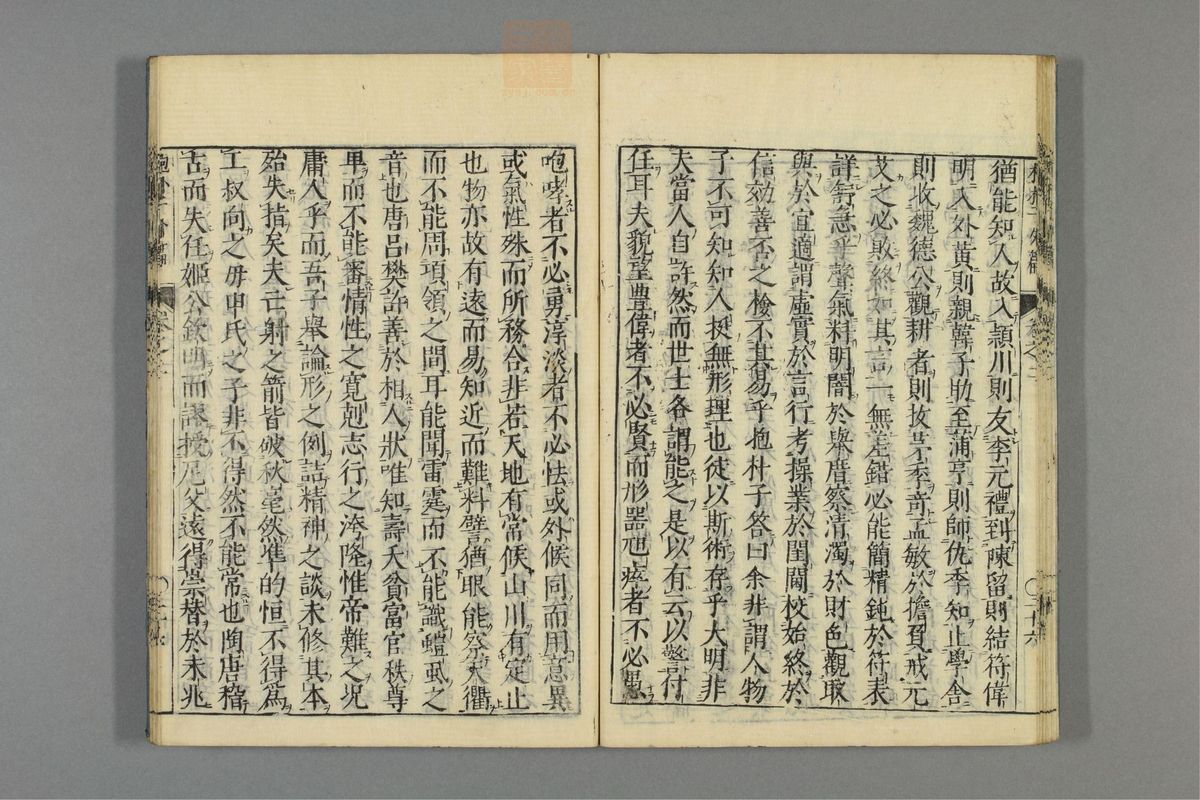 猶能知人故入頴川則友李元禮到陳留則結符偉
明入外黄則親韓子助至蒲亭則師仇季知止學舍
則收魏德公觀耕者則拔茅季竒孟敏於擔負戒元
艾之必敗終如其言一無差錯必能簡精鈍於符表
詳舒急乎聲氣料明闇於舉厝察清濁於財色觀取
與於宜適謂虛實於言行考操業於閨閫校始終於
信効善否之檢不其易乎抱朴子答曰余非謂人物
子不可知知人挺無形理也徒以斯術存乎大明非
夫當人自許然而世士各謂能之是以有云以警付
任耳夫貌望豊偉者不必賢而形器尪瘁者不必愚
咆哮者不必勇淳淡者不必怯或外候同而用意異
或氣性殊而所務合非若天地有常候山川有定止
也物亦故有遠而易知近而難料譬猶眼能察天衢
而不能周項領之間耳能聞雷霆而不能識螘虱之
音也唐呂樊許善於相人狀唯知壽夭貧富官秩尊
卑而不能審情性之寛剋志行之洿隆惟帝難之况
庸人乎而吾子舉論形之例詰精神之談未修其本
殆失指矣夫亡射之箭皆破秋毫然準的恒不得為
工叔向之母申氏之子非不得然不能常也陶唐稽
古而失任姬公欽明而謬授尼父遠得崇替於未兆